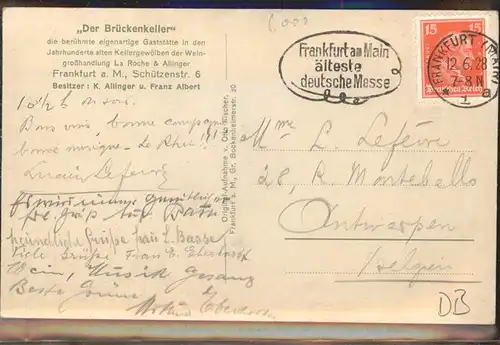 "Der Brückenkeller"
die berühmte eigenartige Gaststätte in den
Jahrhunderte alten Kellergewölben der Wein-
großhandlung La Roche & Allinger
Frankfurt a. M., Schützenstr. 6
Besitzer: K. Allinger u. Franz Albert
Bons vins, bonne compagnie
bonne musique - Le Rhin!
freundliche Grüße Frau L. Basse
Viele Grüße Frau E.
Wein, Musik Gesang
Beste Grüsse
Original-Aufnahme v. Otto Bascher,
Frankfurt a. M., Gr. Bockenheimerstr. 30
Frankfurt am Main
älteste
deutsche Messe
15 15
Deutsches Reich
FRANKFURT (MAIN)
12.6.28
7-8 N
1
Mme L. Lefèvre
28, R. Montebello
Antwerpen
Belgien
DB